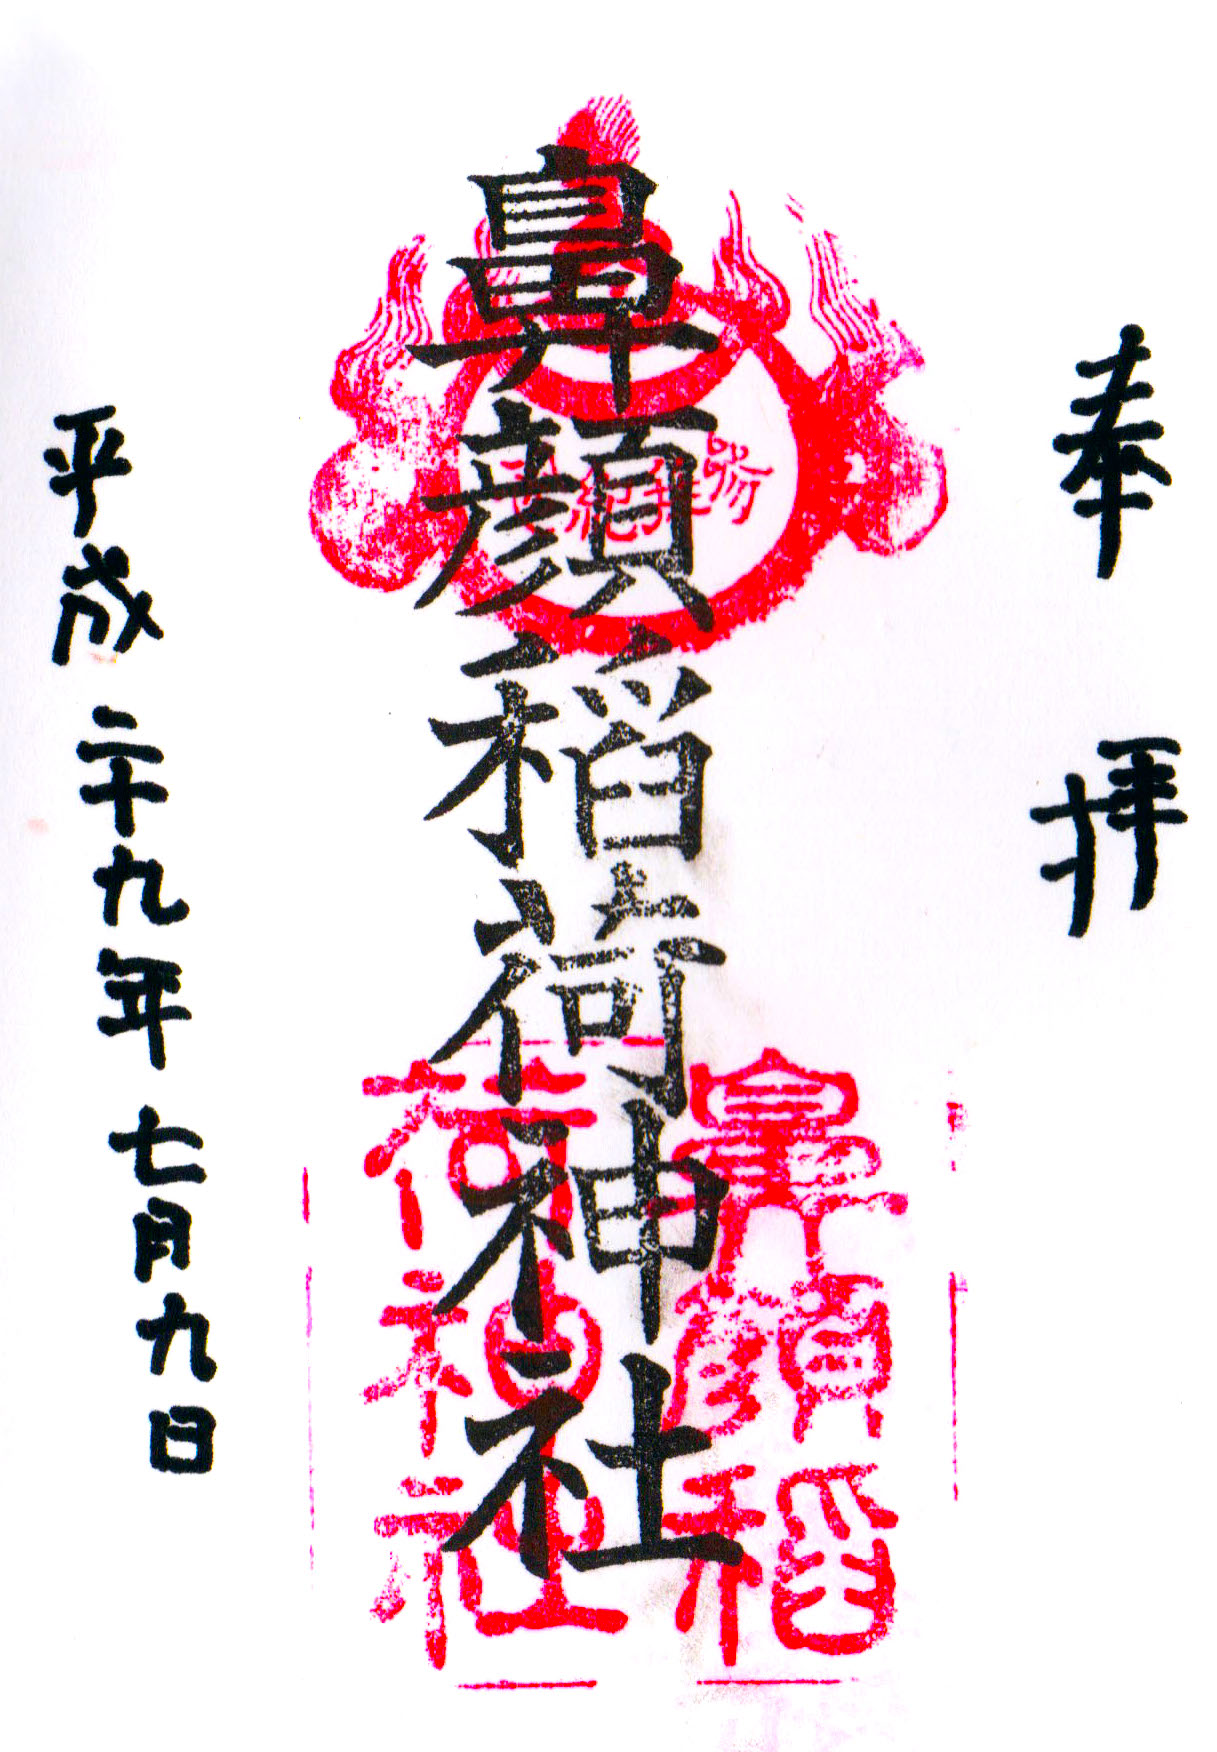 奉拝
鼻顔稲荷神社
鼻顔稲
荷神社
平成二十九年七月九日